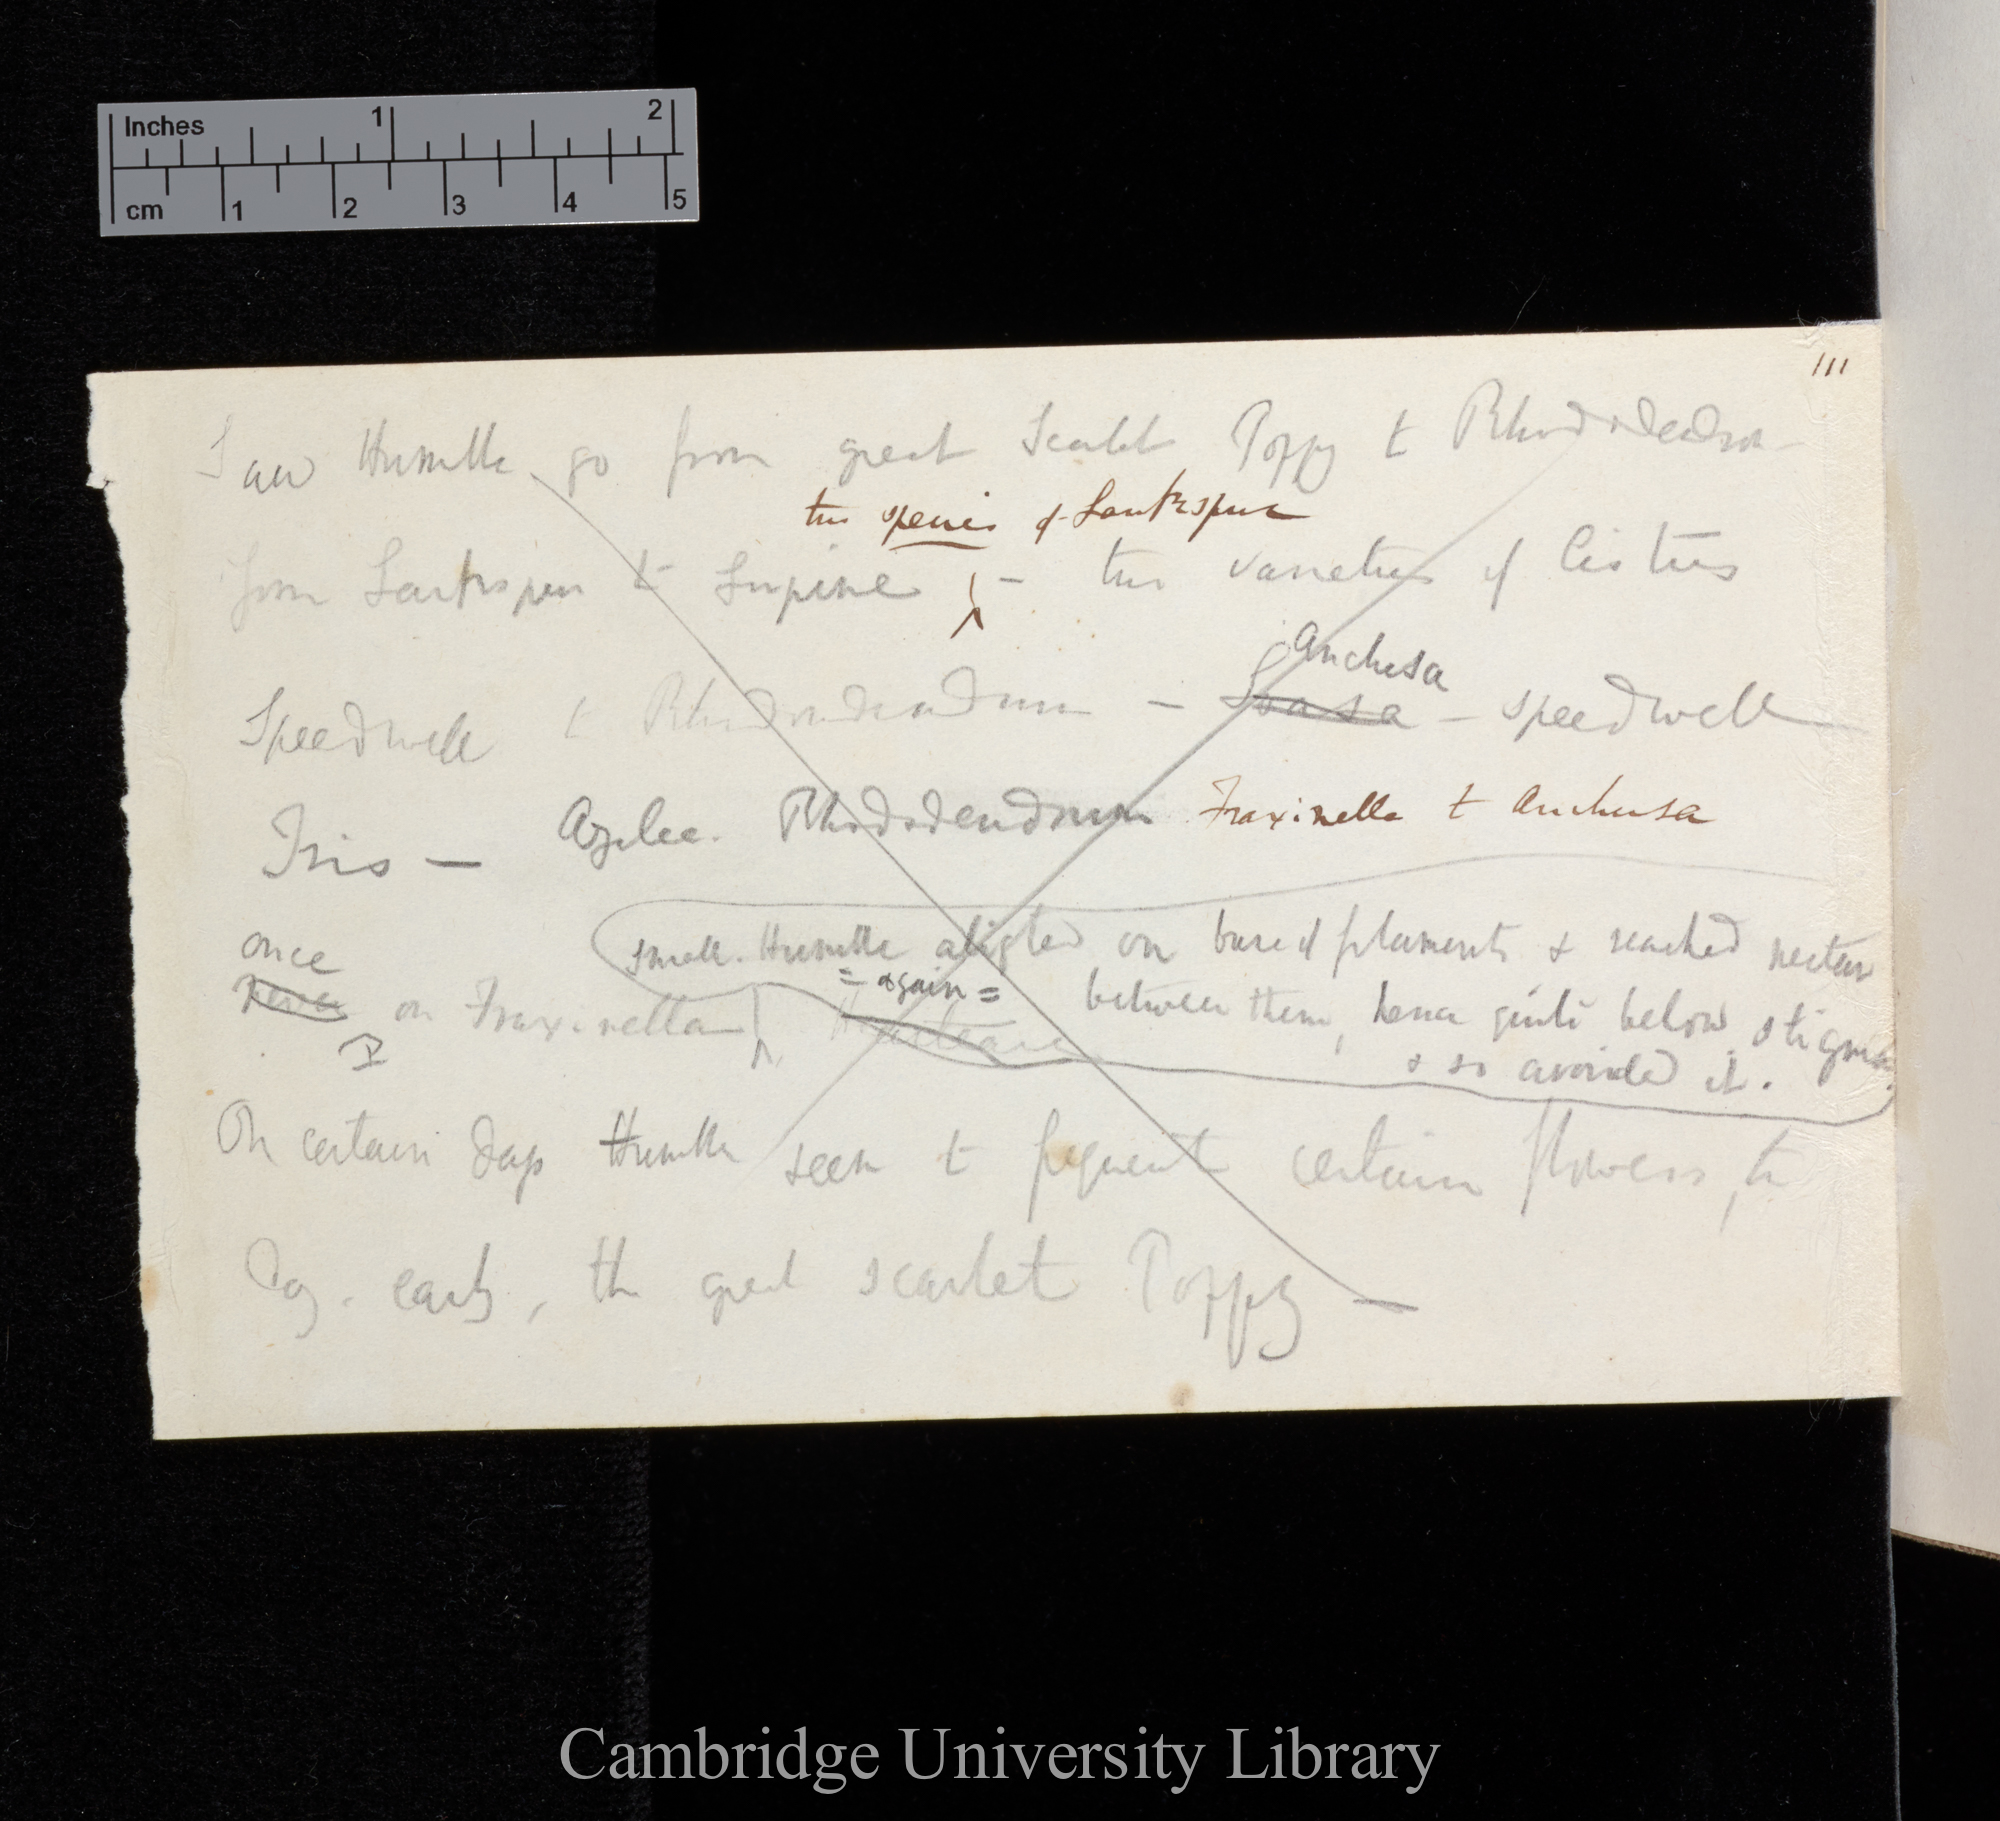 Inches 1 2
cm 1 2 3 4 5
111
Saw Humble go from great Scarlet Poppy to Rhododendron
two species of Larkspur
from Larkspur to Lupine — two varieties of Cistus
Anchusa
Speedwell to Rhododendrum — — speedwell
Iris — Azalea. Rhododendrum Fraxinella to Anchusa
once small Humble alighted on base of filaments & reached nectar
= again = between them, hence quite below stigma
never on Fraxinella
& so avoided it.
On certain days Humble seem to frequent certain flowers, to
day. early, the great scarlet Poppy —
Cambridge University Library